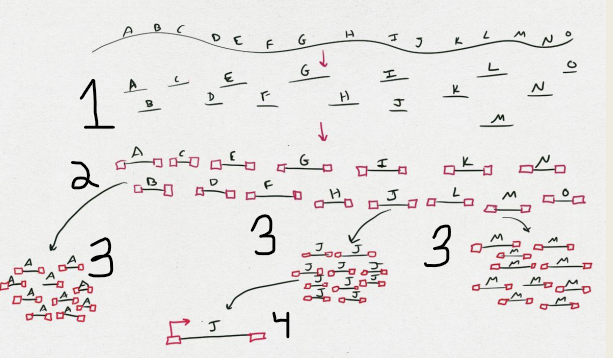 A B C D E F G H I J K L M N O
A C E G I L O
1 B D F H J K N
M
2 A C E G I K N
B D F H J L M O
3 3 3
A A J J M M
A A A J J J M M M
A A A J J M M M
A A J J M M
J 4